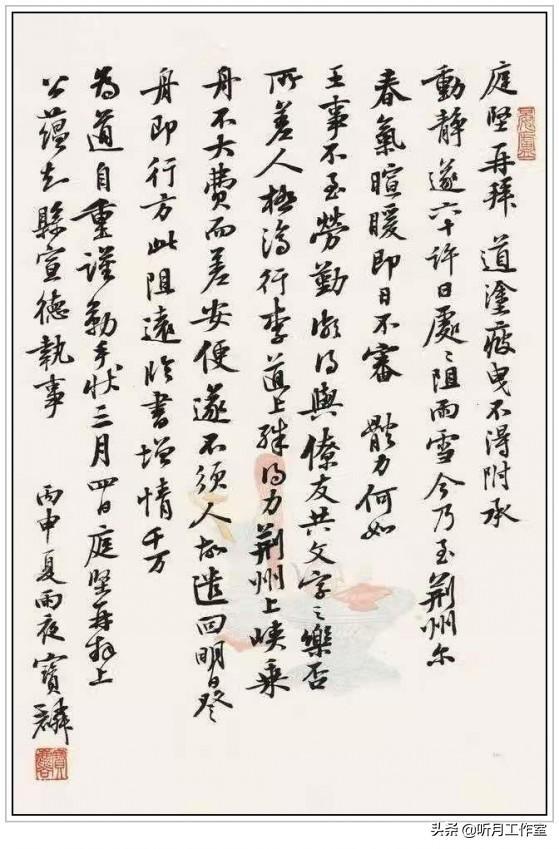 庭堅再拜 道塗疲曳不得附承
動靜遂六十許日處〻阻雨雪今乃至荊州尔
春氣暄暖即日不審 體力何如
王事不至勞勤頗得與僚友共文字之樂否
所差人極濟行李道上殊得力荊州上峽乘
舟不大費而差安便遂不須人故遣回明日登
舟即行方此阻遠臨書增情千万
為道自重謹勒手狀三月四日庭堅再拜上
公蘊知縣宣德執事
丙申夏雨夜寶麟
头条 @听月工作室